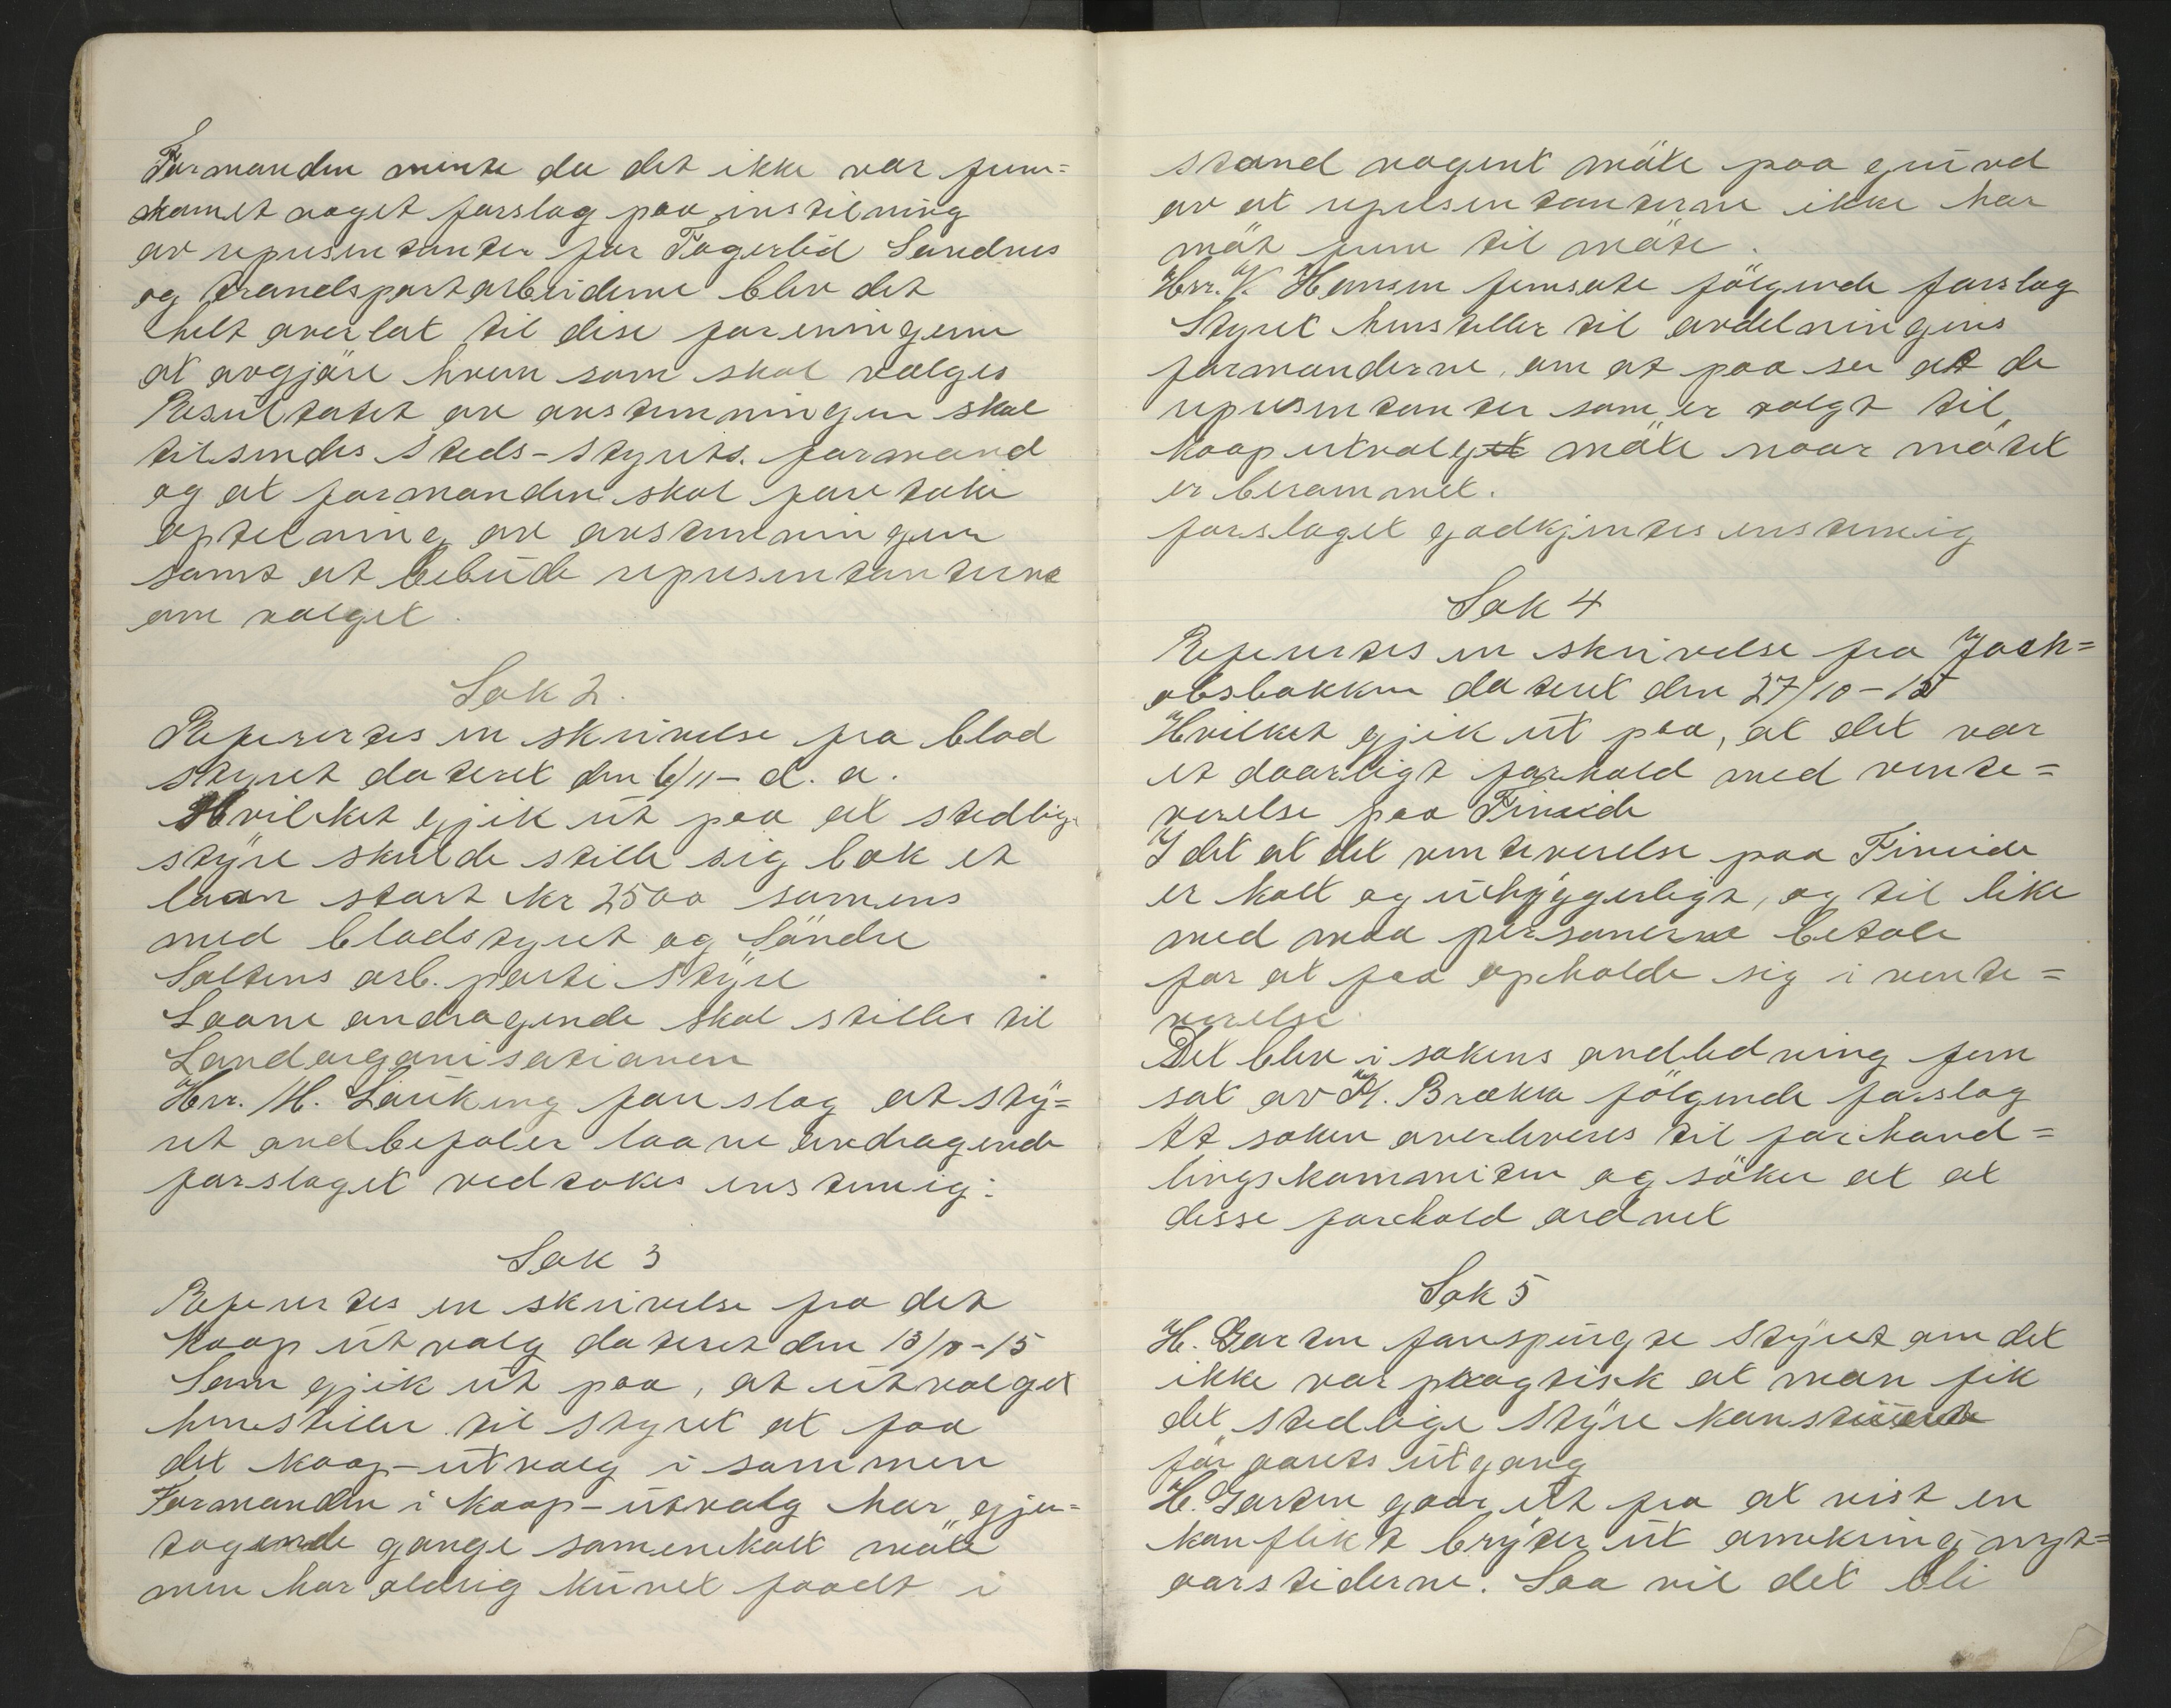 Formanden mente da det ikke var frem=
kamet noget forslag paa instilning
av representanter for Fagerlid Sandnes
og trandsportarbeiderne blev det
helt averlat til dise foreningerne
at avgjöre hvem som skal vælges
Resultatet av avstemningen skal
tilsendes Steds-Styrets. formand
og at formanden skal foretake
optelning av avstemningen
samt at bebude representanterne
om valget.
Sak 2.
Refererdes en skrivelse fra blad
styret dateret den 6/11- d. a.
Hvilket gjik ut paa at stedlig
styre skulde stille sig bak et
laan stort kr 2500 samens
med bladstyret og Söndre
Saltens arb. parti Styre
Laane andragende skal stilles til
Landorganisationen
Hrr. H. Lauking foreslog at sty=
ret andbefaler laane andragende
forslaget vedtokes enstemig:
Sak 3
Refererdes en skrivelse fra det
Koop ut valg dateret den 13/10-15
Som gjik ut paa, at utvalget
henstiller til styret at faa
det koop-utvalg i sammen
Formanden i Koop-utvalg har gjen=
tagende gange samenkalt möte
men har aldrig kunet faadt i
stand nogent möte paa grund
av at representanterne ikke har
möt frem til möte.
Hrr. K. Hansen fremsate fölgende forslag
Styret henstiller til avdelningens
formanderne, om at paa se at de
representanter som er valgt til
Koop utvalget möte naar mötet
er berammet.
forslaget godkjentes enstemig
Sak 4
Refererdes en skrivelse fra Jack=
obsbakken dateret den 27/10-15
Hvilket gjik ut paa, at det var
et daarligt forhold med vente=
verelse paa Fineide
I det at det venteverelse paa Fineide
er kalt og uhyggerligt, og til like
med maa personerne betale
for at faa opholde sig i vente=
verelse.
Det blev i sakens andledning frem
sat av K. Brækka fölgende forslag
At saken averleveres til forhand=
lingskommiten og söker at at
disse forhold ordnet
Sak 5
H. Garten forespurgte Styret om det
ikke var pragtisk at man fik
det stedlige Styre
för aarets utgang
H. Garten gaar ut fra at vist en
konflikt bryter ut omkring nyt=
aarstiderne. Saa vil det bli